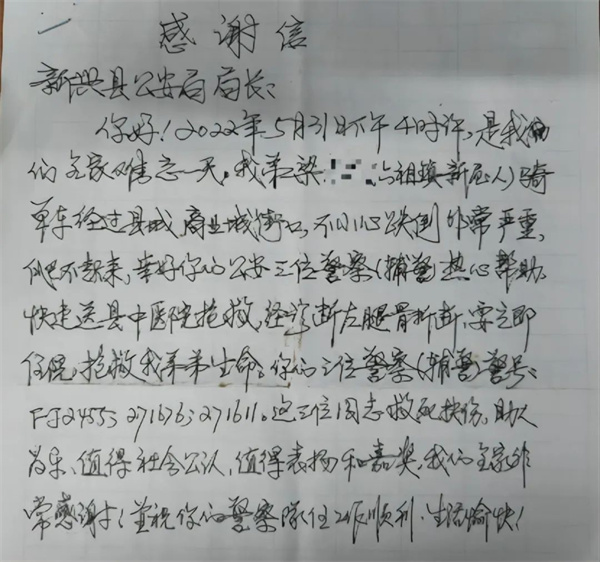 感谢信
新兴县公安局局长:
你好!2022年5月31日下午4时许,是我们
们全家难忘一天。我弟梁 六祖镇新 人)骑
单车经过县城商业城街口,不小心跌倒非常严重,
爬不起来,幸好你们公安三位警察(辅警)热心帮助
快速送县中医院抢救,经诊断左腿骨折断,要立即
住院,抢救我弟弟生命。你们三位警察(辅警)警号:
FJ24553 271676 271611。这三位同志救死扶伤,助人
为乐、值得社会公认,值得表扬和嘉奖,我们全家非
常感谢!并祝你们警察队伍工作顺利.生活愉快!